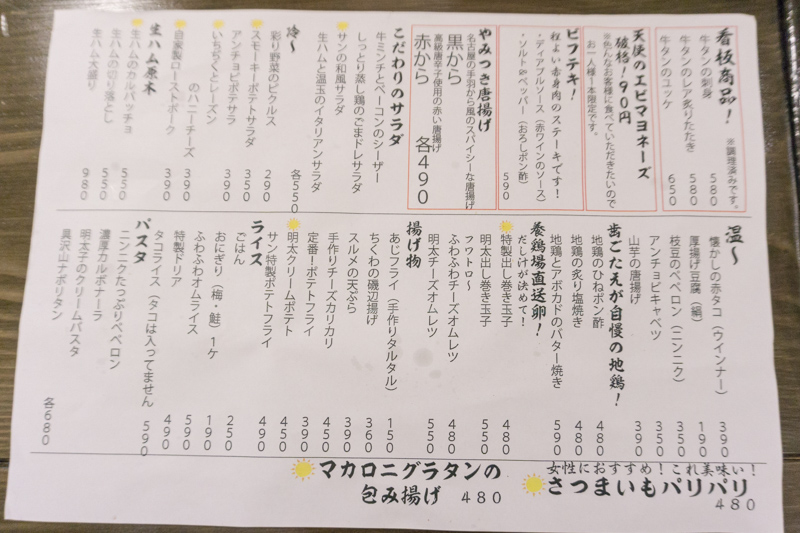 看板商品！
※調理済みです。
牛タンの刺身 580
牛タンのレア炙りたたき 580
牛タンのユッケ 650
天使のエビマヨネーズ
破格！90円
※色んなお客様に食べていただきたいので
お一人様1本限定です。
ビフテキ！
程よい赤身肉のステーキです！
・ディアブルソース（赤ワインのソース）
・ソルト&ペッパー（おろしポン酢）
590
やみつき唐揚げ
名古屋の手羽から風のスパイシーな唐揚げ
黒から
高級唐辛子使用の赤い唐揚げ
赤から 各490
こだわりのサラダ
牛ミンチとベーコンのシーザー
しっとり蒸し鶏のごまドレサラダ
サンの和風サラダ
生ハムと温玉のイタリアンサラダ
各550
冷〜
彩り野菜のピクルス 290
スモーキーポテトサラダ 350
アンチョビポテサラ 350
いちぢくとレーズン
のハニーチーズ 390
自家製ローストポーク 390
生ハム原木
生ハムのカルパッチョ 550
生ハムの切り落とし 550
生ハム大盛り 980
温〜
懐かしの赤タコ（ウインナー） 390
厚揚げ豆腐（絹） 190
枝豆のペペロン（ニンニク） 350
アンチョビキャベツ 350
山芋の唐揚げ 390
歯ごたえが自慢の地鶏！
地鶏のひねポン酢 480
地鶏の炙り塩焼き 480
地鶏とアボカドのバター焼き 590
養鶏場直送卵！
だしけが決めて！
特製出し巻き玉子 480
明太出し巻き玉子 550
フワトロ〜
ふわふわチーズオムレツ 480
明太チーズオムレツ 550
揚げ物
あじフライ（手作りタルタル） 150
ちくわの磯辺揚げ 360
スルメの天ぷら 390
手作りチーズカリカリ 450
定番！ポテトフライ 390
明太クリームポテト 450
サン特製ポテトフライ 490
ライス
ごはん 250
おにぎり（梅・鮭）1ケ 190
ふわふわオムライス 590
特製ドリア 490
タコライス（タコは入ってません） 590
パスタ
ニンニクたっぷりペペロン
濃厚カルボナーラ
明太子のクリームパスタ
具沢山ナポリタン
各680
女性におすすめ！これ美味い！
さつまいもパリパリ
480
マカロニグラタンの
包み揚げ 480